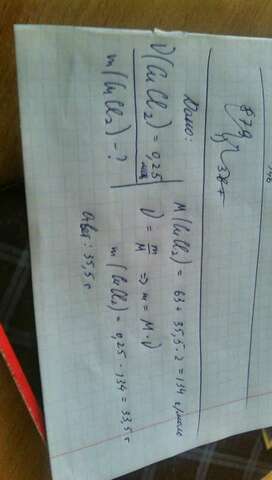 Дано:
ν(CuCl₂) = 0,25 моль
m(CuCl₂) - ?
M(CuCl₂) = 63 + 35,5 · 2 = 134 г/моль
ν = m/M => m = M · ν
m(CuCl₂) = 0,25 · 134 = 33,5 г
Ответ: 35,5 г